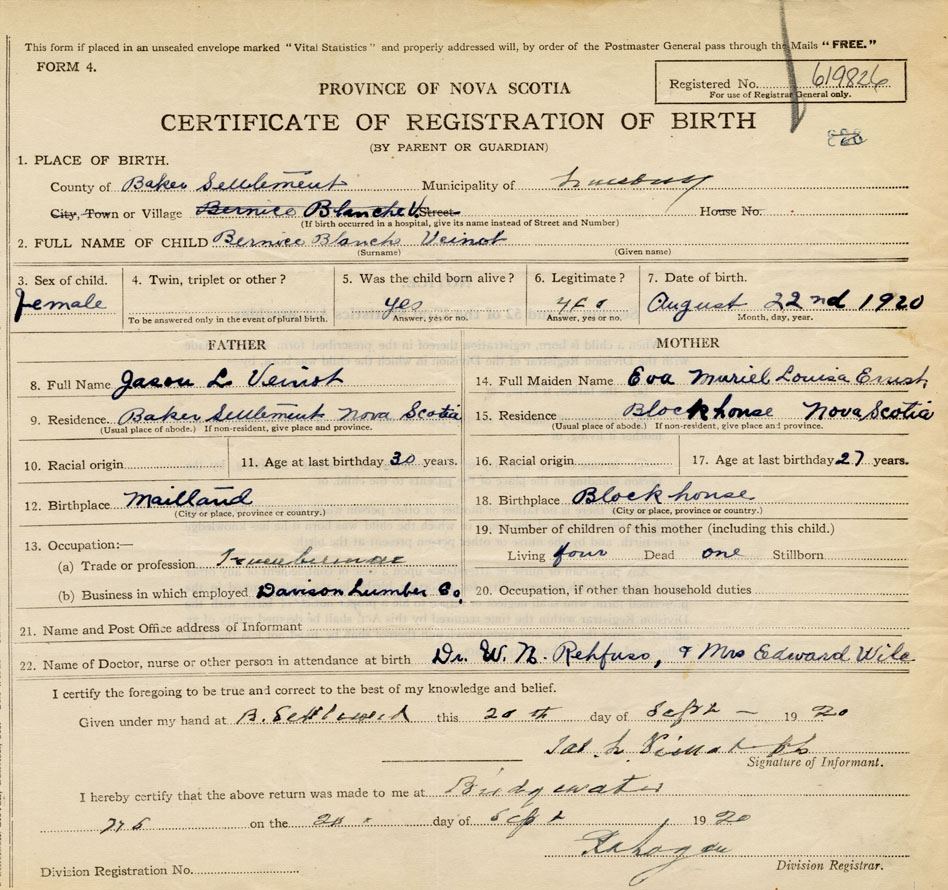 This form if placed in an unsealed envelope marked "Vital Statistics" and properly addressed will, by order of the Postmaster General pass through the Mails "FREE."
FORM 4.
Registered No. 619826
For use of Registrar General only.
PROVINCE OF NOVA SCOTIA
CERTIFICATE OF REGISTRATION OF BIRTH
(BY PARENT OR GUARDIAN)
1. PLACE OF BIRTH.
County of Baker Settlement Municipality of
City, Town or Village Bernice Blanche V. Street House No.
(If birth occurred in hospital, give its name instead of Street and Number)
2. FULL NAME OF CHILD Bernice Blanche Veinot
(Surname) (Given name)
3. Sex of child. 4. Twin, triplet or other? 5. Was the child born alive? 6. Legitimate? 7. Date of birth.
female yes yes August 22nd 1920
To be answered only in the event of plural birth. Answer, yes or no. Answer, yes or no. Month, day, year.
FATHER
8. Full Name Jason L Veinot
9. Residence. Baker Settlement Nova Scotia
(Usual place of abode.) If non-resident, give place and province.
10. Racial origin 11. Age at last birthday 30 years.
12. Birthplace Maitland
(City or place, province or country.)
13. Occupation:—
(a) Trade or profession
(b) Business in which employed Davison Lumber Co,
MOTHER
14. Full Maiden Name Eva Muriel Louisa Ernst
15. Residence Blockhouse Nova Scotia
(Usual place of abode.) If non-resident, give place and province.
16. Racial origin 17. Age at last birthday 27 years.
18. Birthplace Blockhouse
(City or place, province or country.)
19. Number of children of this mother (including this child.)
Living four Dead one Stillborn
20. Occupation, if other than household duties
21. Name and Post Office address of Informant
22. Name of Doctor, nurse or other person in attendance at birth Dr. W. N. Rehfuss, & Mrs Edward Wile
I certify the foregoing to be true and correct to the best of my knowledge and belief.
Given under my hand at B. Settlement this 20th day of Sept 1920
Signature of Informant.
I hereby certify that the above return was made to me at Bridgewater
on the day of Sept 1920
Division Registrar.
Division Registration No.